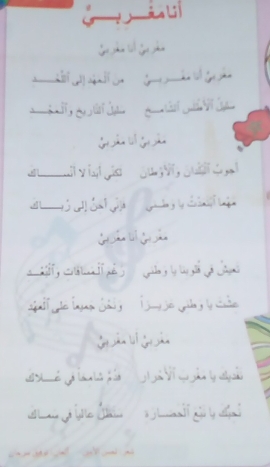 أَنَا مَغْرِبِيٌّ
مَغْرِبِيٌّ أَنَا مَغْرِبِيٌّ
مَغْرِبِيٌّ أَنَا مَغْرِبِيٌّ مِنَ الْمَهْدِ إِلَى اللَّحْدِ
سَلِيلُ الْأَطْلَسِ الشَّامِخِ سَلِيلُ التَّارِيخِ وَالْمَجْدِ
مَغْرِبِيٌّ أَنَا مَغْرِبِيٌّ
أَجُوبُ الْبُلْدَانَ وَالْأَوْطَانَ لَكِنِّي أَبَداً لَا أَنْسَاكَ
مَهْمَا ابْتَعَدْتُ يَا وَطَنِي فَإِنِّي أَحِنُّ إِلَى رُبَاكَ
مَغْرِبِيٌّ أَنَا مَغْرِبِيٌّ
تَعِيشُ فِي قُلُوبِنَا يَا وَطَنِي رَغْمَ الْمَسَافَاتِ وَالْبُعْدِ
عِشْتَ يَا وَطَنِي عَزِيزاً وَنَحْنُ جَمِيعاً عَلَى الْعَهْدِ
مَغْرِبِيٌّ أَنَا مَغْرِبِيٌّ
نَفْدِيكَ يَا مَغْرِبَ الْأَحْرَارِ فَدُمْ شَامِخاً فِي عُلَاكَ
نُحِبُّكَ يَا نَبْعَ الْحَضَارَةِ سَتَظَلُّ عَالِياً فِي سَمَاكَ